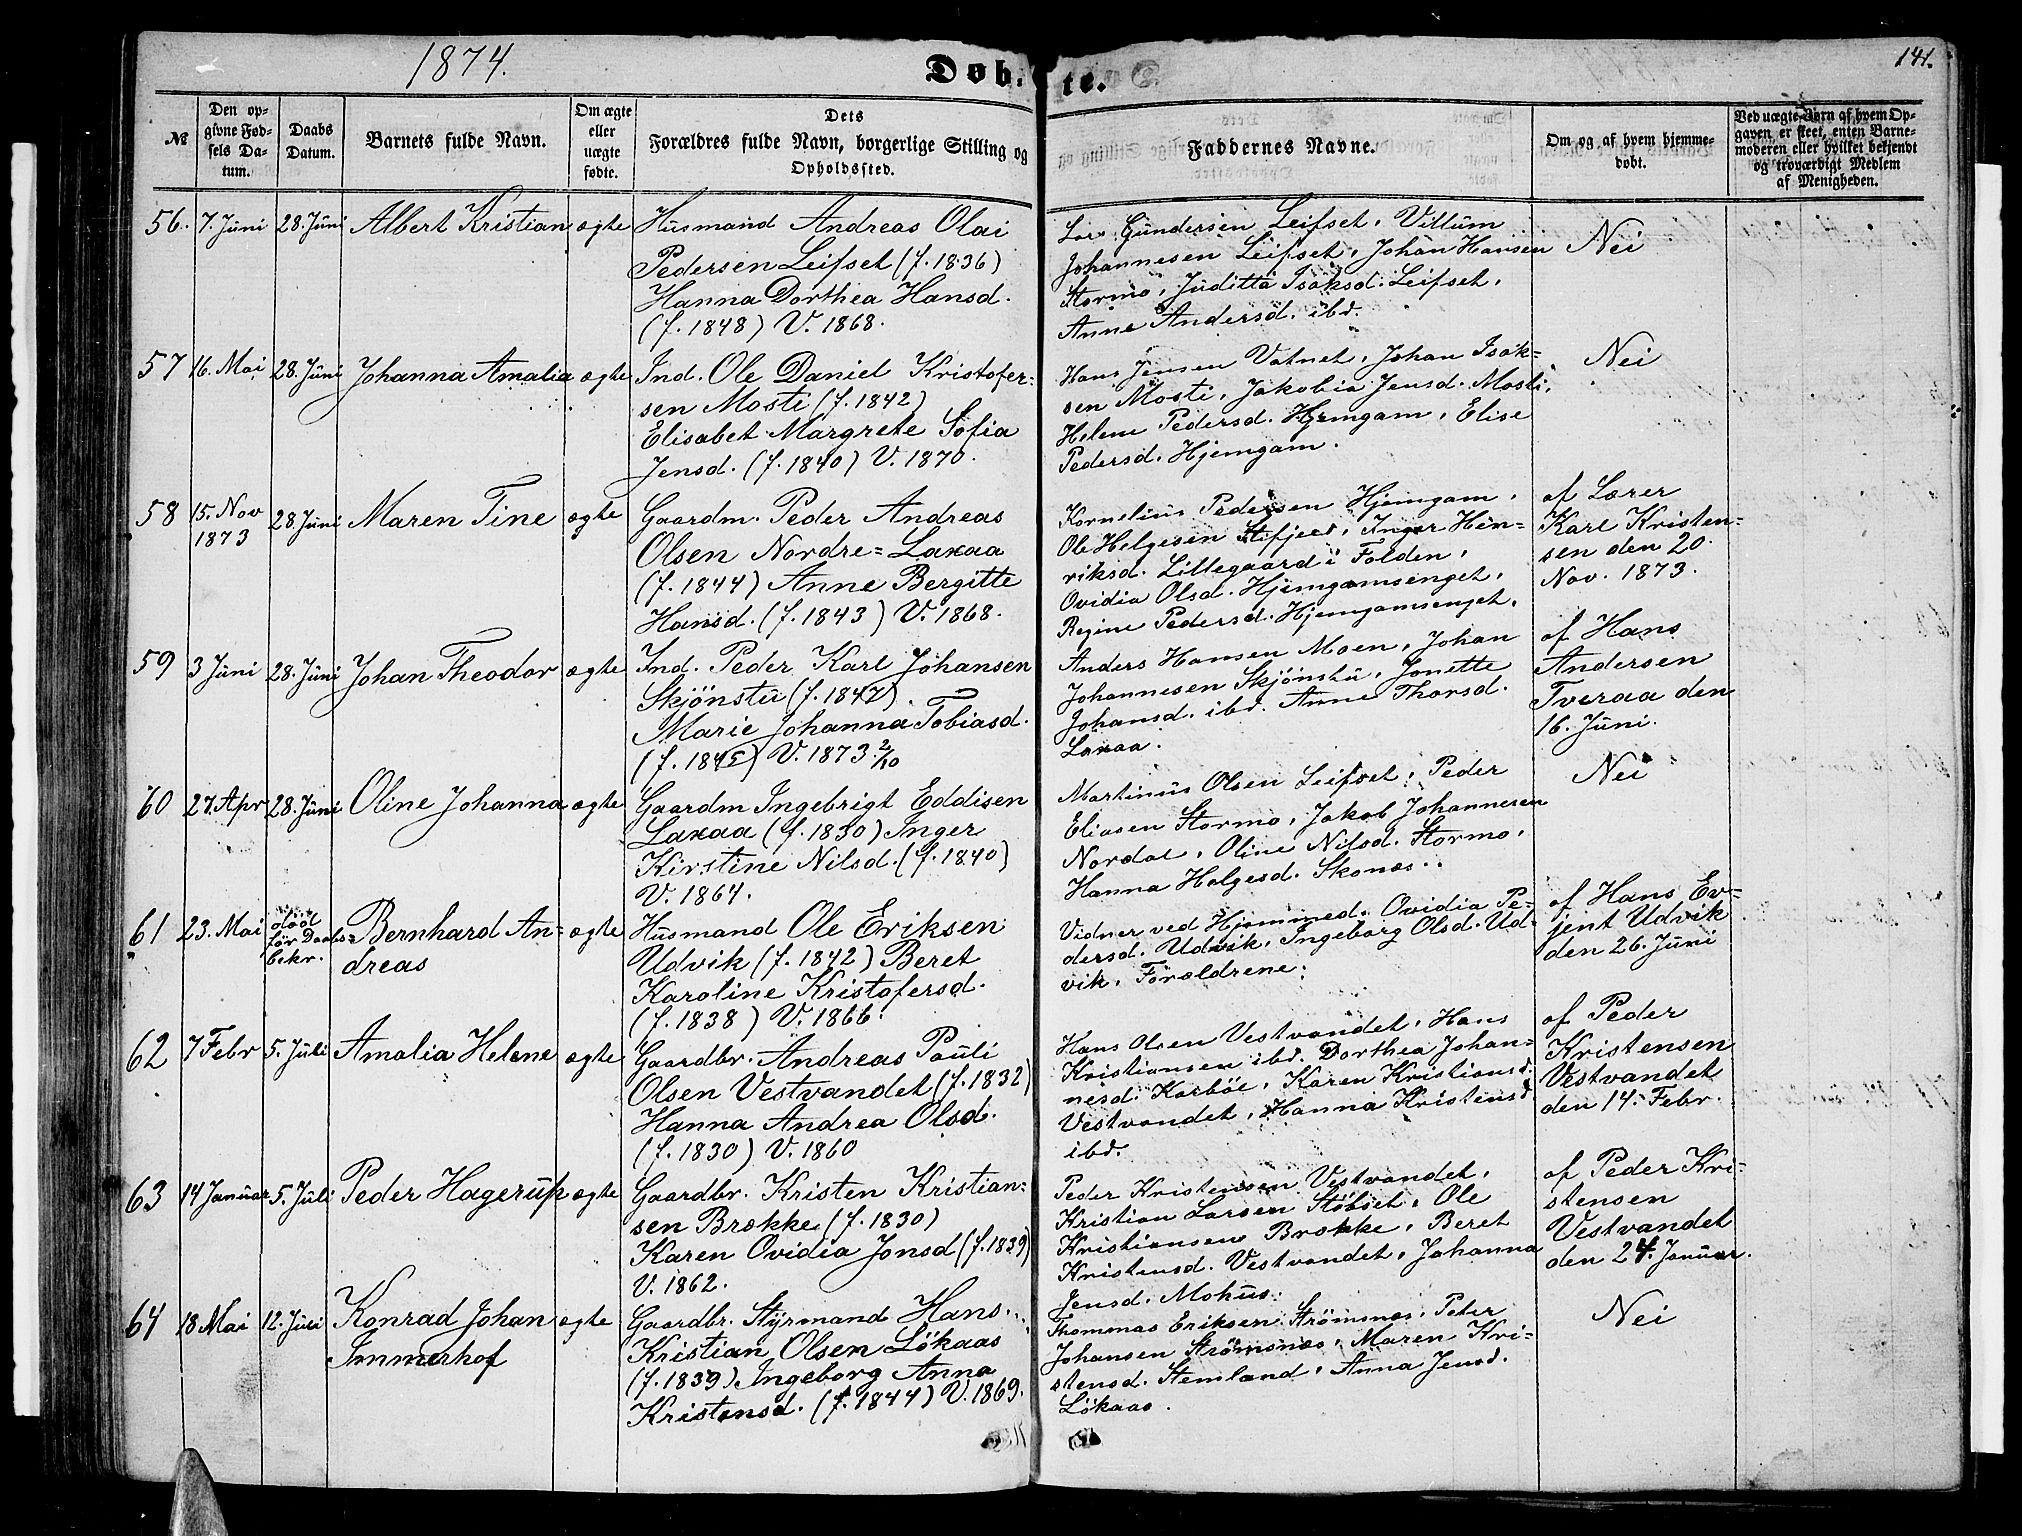 1874.
Døbte.
141.
№
Den op-
givne Fød-
sels Da-
tum.
Daabs
Datum.
Barnets fulde Navn.
Om ægte
eller
uægte
fødte.
Dets
Forældres fulde Navn, borgerlige Stilling og
Opholdssted.
Faddernes Navne.
Om og af hvem hjemme-
døbt.
Ved uægte Børn af hvem Op-
gaven er skeet, enten Barne-
moderen eller hvilket bekjendt
og troværdigt Medlem
af Menigheden.
56. 7. Juni 28. Juni Albert Kristian ægte
Husmand Andreas Olai
Pedersen Leifset (f. 1836)
Hanna Dorthea Hansd.
(f. 1848) V. 1868.
Lars Gundersen Leifset, Villum
Johannesen Leifset, Johan Hansen
Stormo, Juditta Isaksd. Leifset,
Anne Andersd. ibd.
Nei
57 16. Mai 28. Juni Johanna Amalia ægte
Ind. Ole Daniel Kristofer-
sen Mosti (f. 1842)
Elisabet Margrete Sofia
Jensd. (f. 1840) V. 1870.
Hans Jensen Vatnet, Johan Isak-
sen Mosti, Jakobia Jensd. Mosti,
Helene Pedersd. Hjemgam, Elise
Pedersd. Hjemgam.
Nei
58 15. Nov 1873 28. Juni Maren Tine ægte
Gaardm. Peder Andreas
Olsen Nordre-Laxaa
(f. 1844) Anne Bergitte
Hansd. (f. 1843) V. 1868.
Kornelius Pedersen Hjemgam,
Ole Helgesen Stifjeld, Inger Hen-
riksd. Lillegaard i Folden,
Ovidia Olsd. Hjemgamsenget,
Regine Pedersd. Hjemgamsenget.
af Lærer
Karl Kristen-
sen den 20.
Nov. 1873.
59 3 Juni 28. Juni Johan Theodor ægte
Ind. Peder Karl Johansen
Skjönstu (f. 1847)
Marie Johanna Tobiasd.
(f. 1845) V. 1873 2/10
Anders Hansen Moen, Johan
Johannesen Skjönstu, Jonette
Johansd. ibd. Anne Thorsd.
Laxaa.
af Hans
Andersen
Tveraa den
16. Juni.
60 27. Apr 28. Juni Oline Johanna ægte
Gaardm Ingebrigt Eddisen
Laxaa (f. 1830) Inger
Kirstine Nilsd. (f. 1840)
V. 1864.
Martinus Olsen Leifset, Peder
Eliasen Stormo, Jakob Johannesen
Nordal, Oline Nilsd. Stormo,
Hanna Helgesd. Skonæs.
Nei
61 23. Mai död
før Daabs-
bekr.
Bernhard An-
dreas
ægte
Husmand Ole Eriksen
Udvik (f. 1842) Beret
Karoline Kristofersd.
(f. 1838) V. 1866.
Vidner ved Hjemmed. Ovidia Pe-
dersd. Udvik, Ingeborg Olsd. Ud-
vik, Forældrene.
af Hans Ev-
jent Udvik
den 26. Juni
62 7 Febr 5. Juli Amalia Helene ægte
Gaardbr. Andreas Pauli
Olsen Vestvandet (f. 1832)
Hanna Andrea Olsd.
(f. 1830) V. 1860
Hans Olsen Vestvandet, Hans
Kristiansen ibd. Dorthea Johan-
nesd. Karböl, Karen Kristiansd.
Vestvandet, Hanna Kristensd
ibd.
af Peder
Kristensen
Vestvandet
den 14. Febr.
63 14 Januar 5. Juli Peder Hagerup ægte
Gaardbr. Kristen Kristian-
sen Brække (f. 1830)
Karen Ovidia Jonsd (f. 1839)
V. 1862.
Peder Kristensen Vestvandet,
Kristian Larsen Stöbset, Ole
Kristiansen Brække, Beret
Kristensd. Vestvandet, Johanna
Jensd. Mohus.
af Peder Kri-
stensen
Vestvandet
den 24. Januar.
64 18 Mai 12. Juli Konrad Johan
Immerhof
ægte
Gaardbr. Styrmand Hans
Kristian Olsen Lökaas
(f. 1839) Ingeborg Anna
Kristensd. (f. 1844) V. 1869.
Thommas Eriksen Strömsnæs, Peter
Johansen Strömsnæs, Maren Kri-
stensd. Stemland, Anna Jensd.
Lökaas.
Nei